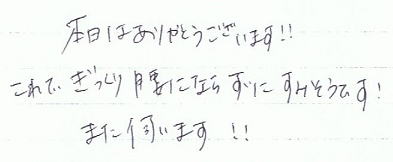 本日はありがとうございます!!
これで、ぎっくり腰にならずにすみそうです!
また伺います!!